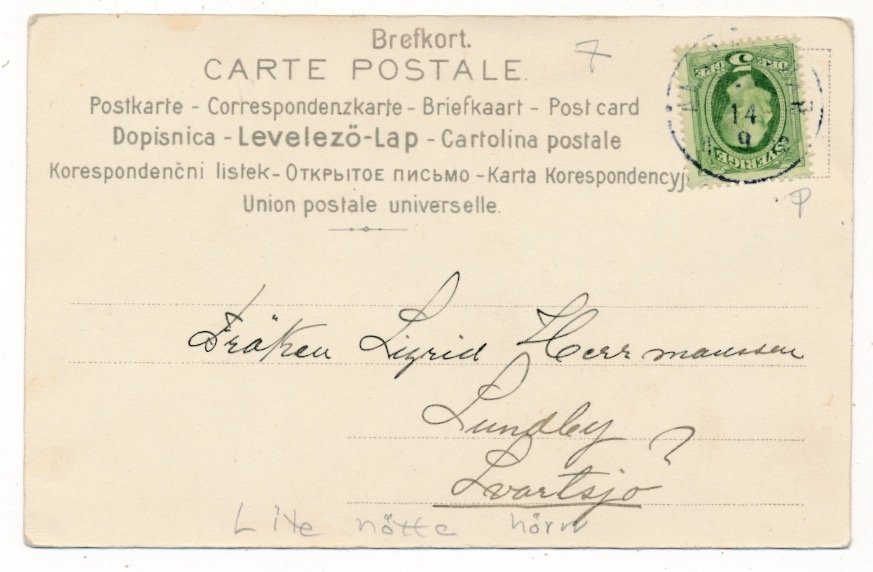 Brefkort.
7
CARTE POSTALE.
Postkarte - Correspondenzkarte - Briefkaart - Post card
Dopisnica - Levelező-Lap - Cartolina postale
Korespondenční listek - Открытое письмо - Karta Korespondencyj
Union postale universelle.
5
ÖRE
SVERIGE
14
9
P
Fröken Sigrid Herrmanssen
Lundby
Svartsjö
?
Lite nötte hörn